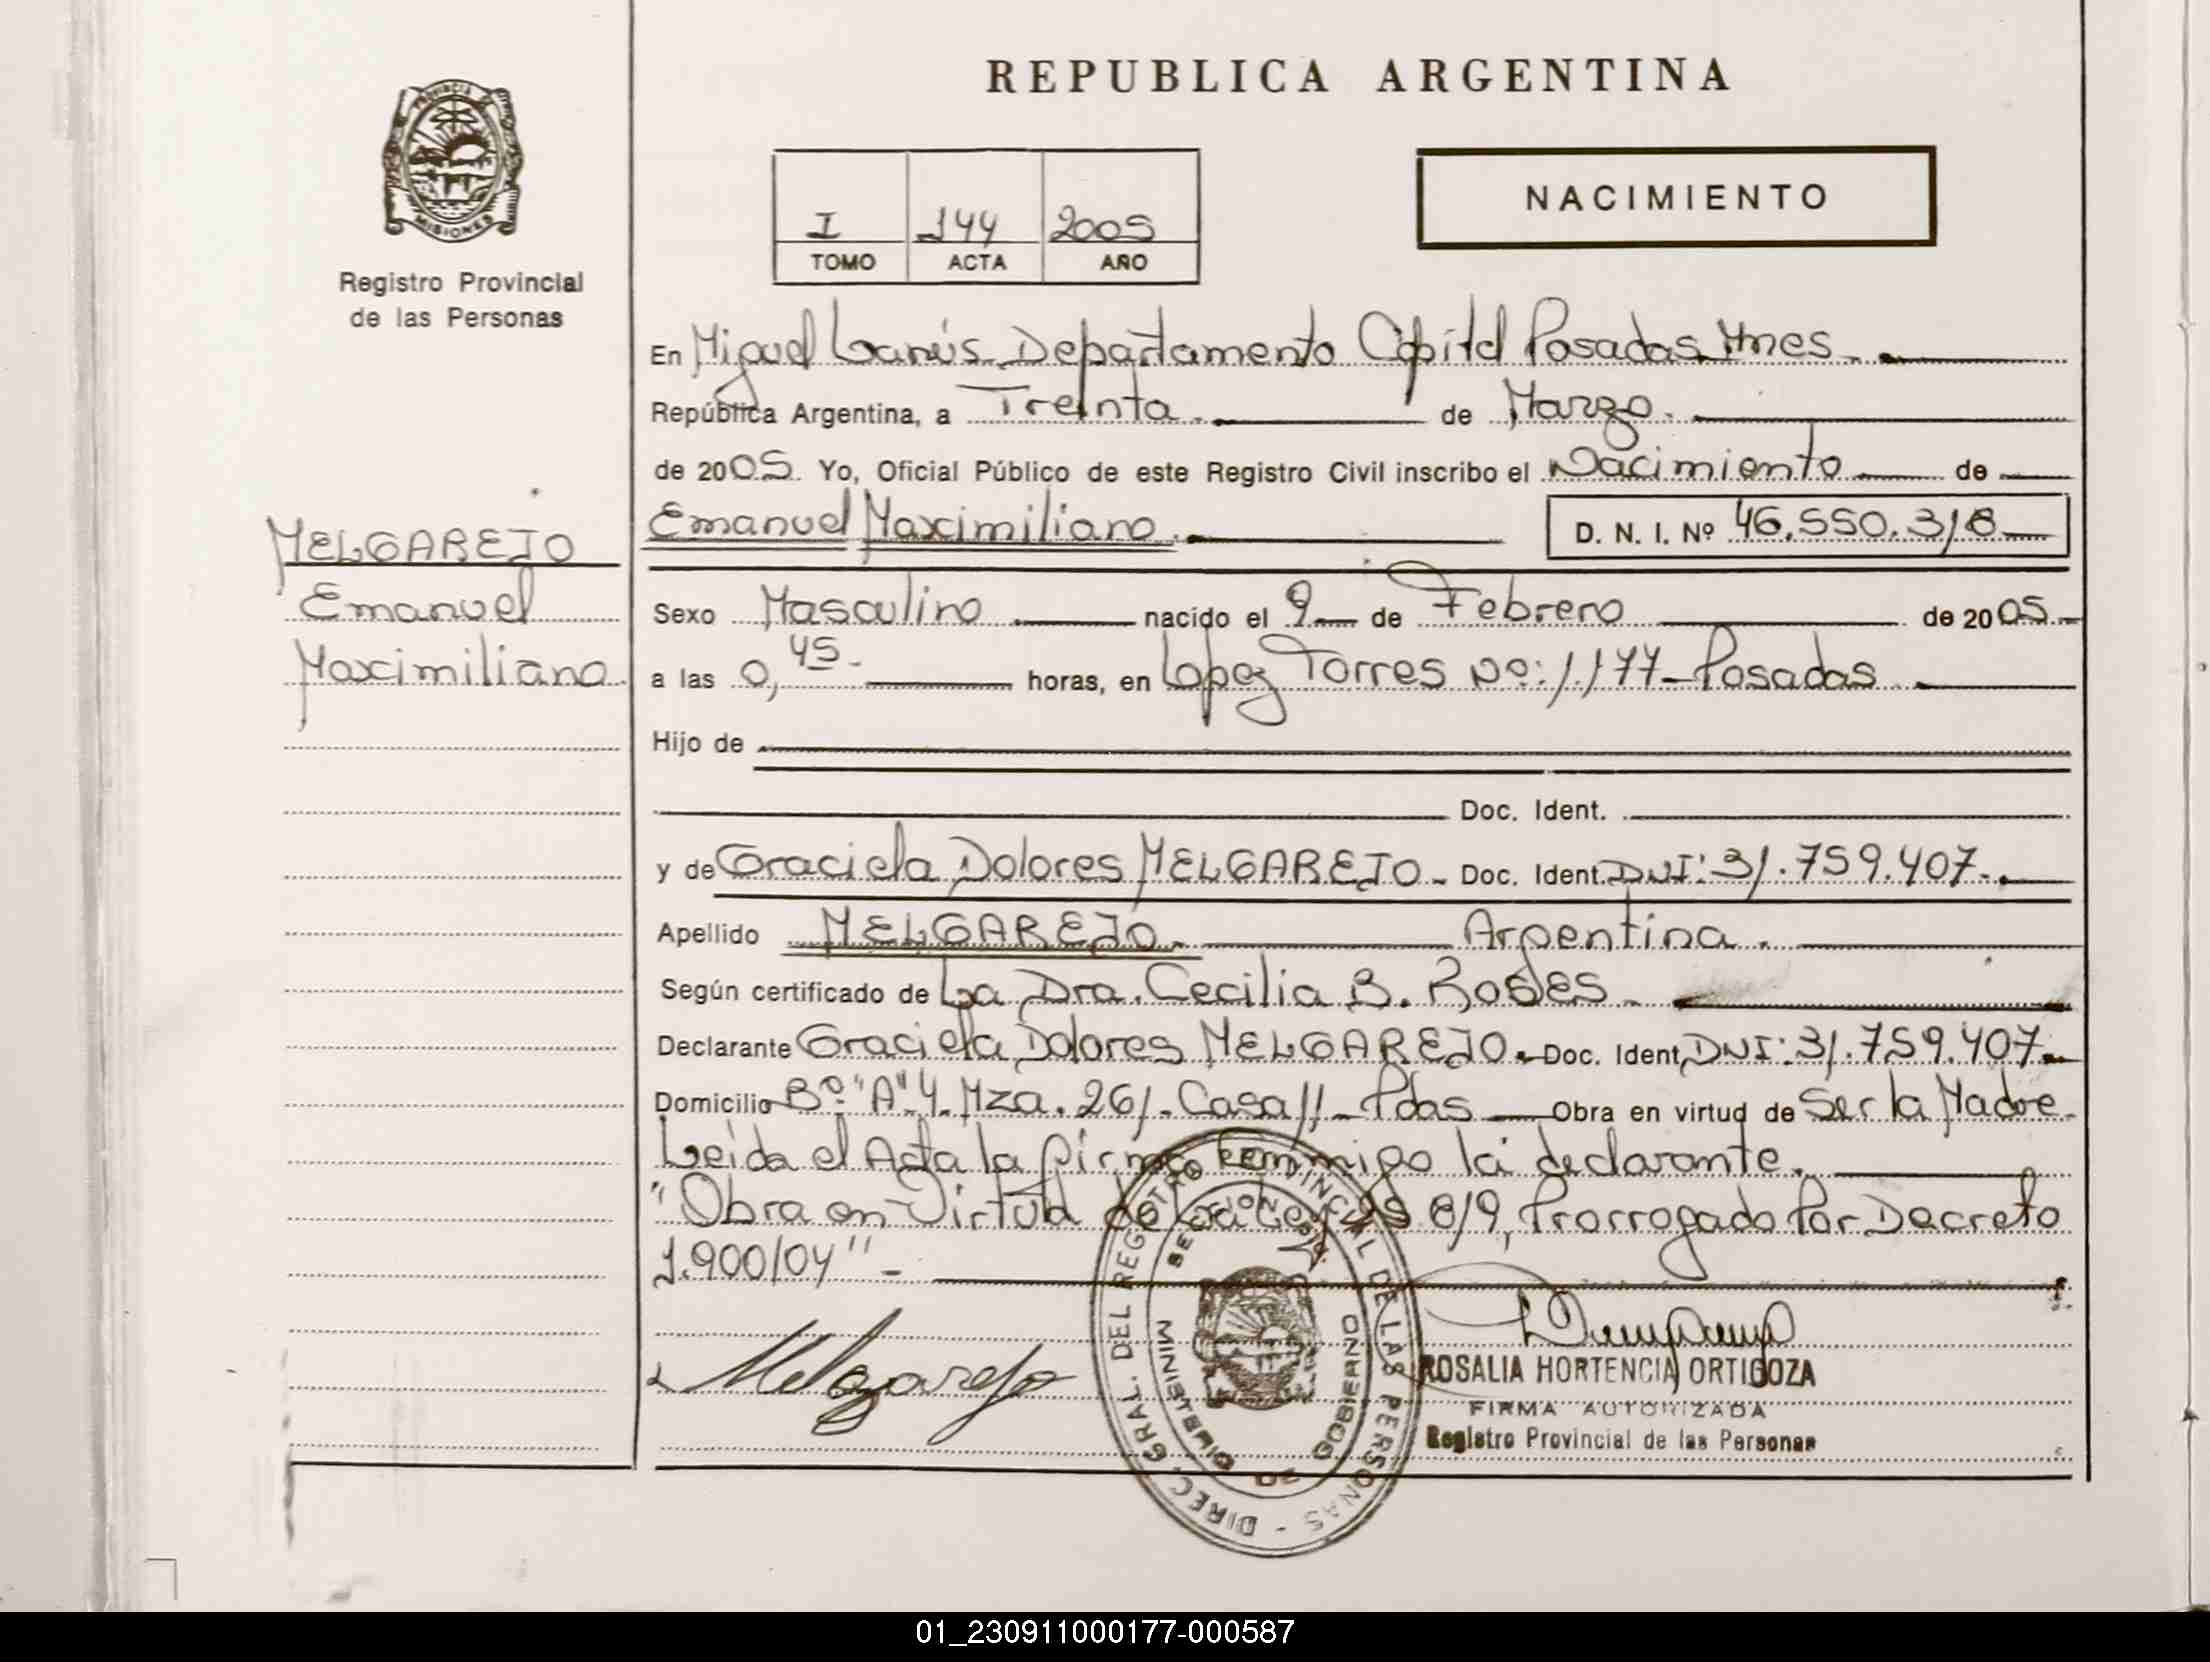 PROVINCIA DE
MISIONES
Registro Provincial
de las Personas
MELGAREJO
Emanuel
Maximiliano
REPUBLICA ARGENTINA
I 144 2005
TOMO ACTA AÑO
NACIMIENTO
En Miguel Lanús Departamento Capital Posadas Mnes.
República Argentina, a Treinta. de Marzo.
de 2005. Yo, Oficial Público de este Registro Civil inscribo el Nacimiento de
Emanuel Maximiliano. D. N. I. Nº 46.550.318
Sexo Masculino nacido el 9 de Febrero de 2005.
a las 0,45 horas, en Lopez Torres Nº: 1.177 - Posadas
Hijo de
Doc. Ident.
y de Graciela Dolores MELGAREJO - Doc. Ident. DNI: 31.759.407.
Apellido MELGAREJO. Argentina.
Según certificado de La Dra. Cecilia B.
Declarante Graciela Dolores MELGAREJO. Doc. Ident. DNI: 31.759.407.
Domicilio Bº "A" 4. Mza. 261. Casa 11 - Pdas Obra en virtud de Ser la Madre
Leída el Acta la firma conmigo la declarante.
"Obra en Virtud de la Ley 25 819, Prorrogado Por Decreto
1.900/04" -
Melgarejo
DIREC. GRAL. DEL REGISTRO PROVINCIAL DE LAS PERSONAS
MINISTERIO DE GOBIERNO
ROSALIA HORTENCIA ORTIGOZA
FIRMA AUTORIZADA
Registro Provincial de las Personas
01_230911000177-000587